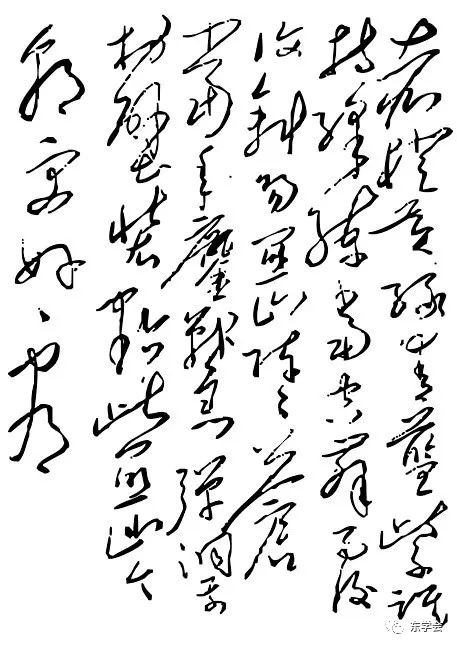 赤橙黄绿青蓝紫谁
持彩练当空舞雨后
复斜阳关山阵々苍
当年鏖战急弹洞前
村壁装点此关山今
朝更好看
东学会